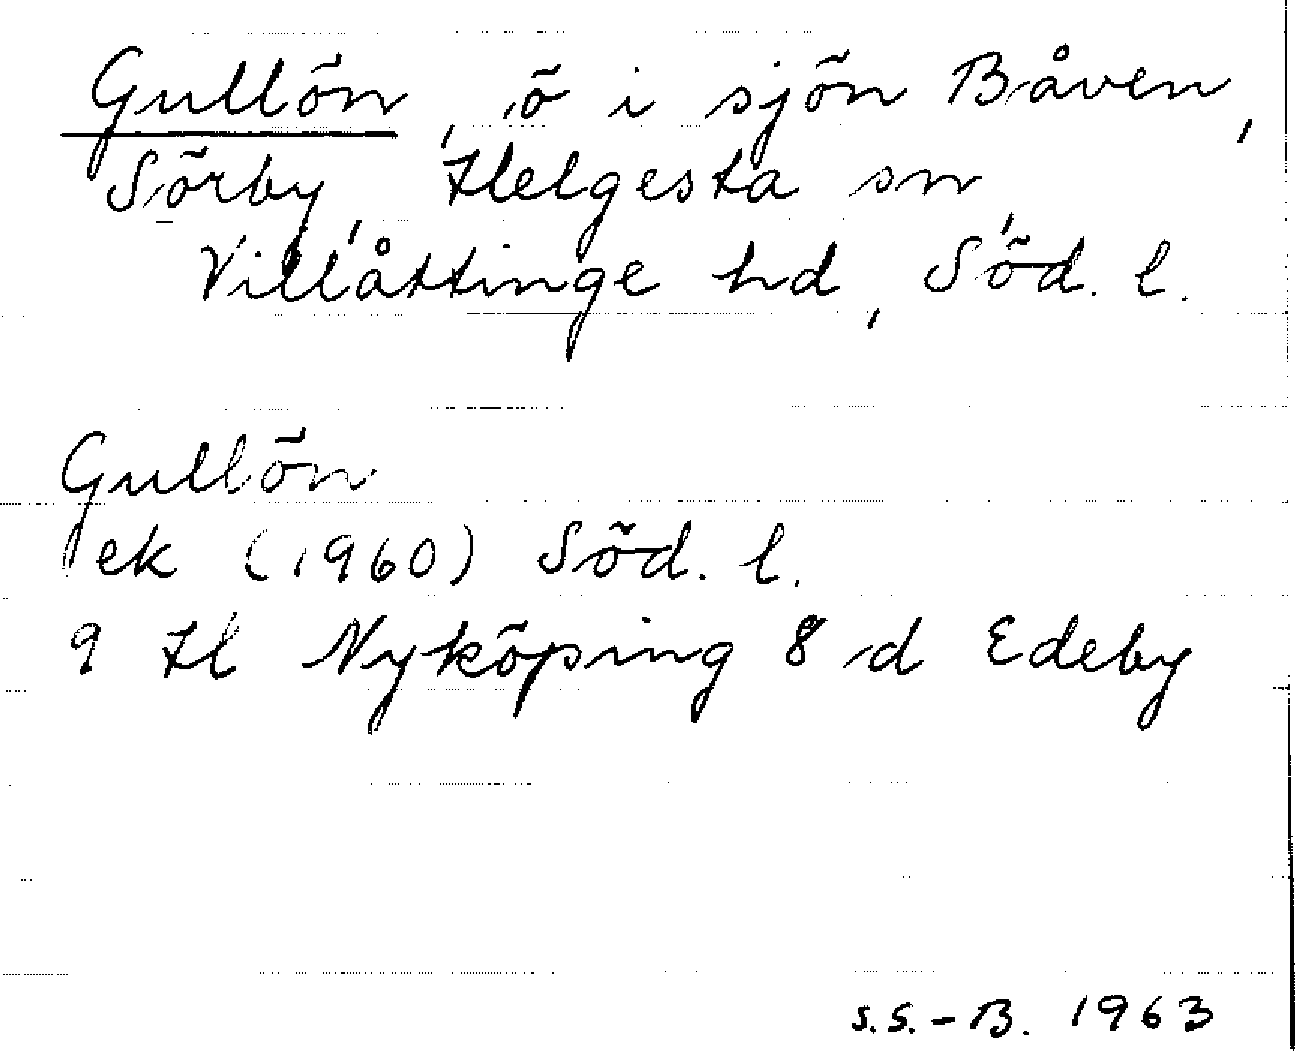 Gullön, ö i sjön Båven,
Sörby, Helgesta sn,
Villåttinge hd, Söd. l.
Gullön
ek (1960) Söd. l.
9 H Nyköping 8 d Edeby
S.S.-B. 1963